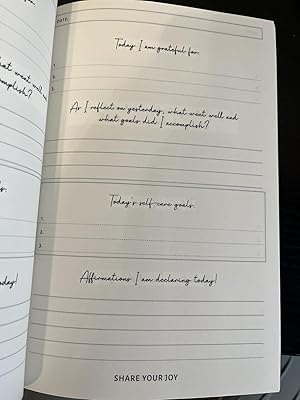 grateful for:
what went well and
accomplish?
DATE:
Today I am grateful for:
1.
2.
3.
As I reflect on yesterday, what went well and
what goals did I accomplish?
Today's self-care goals:
1.
2.
3.
Affirmations I am declaring today!
SHARE YOUR JOY